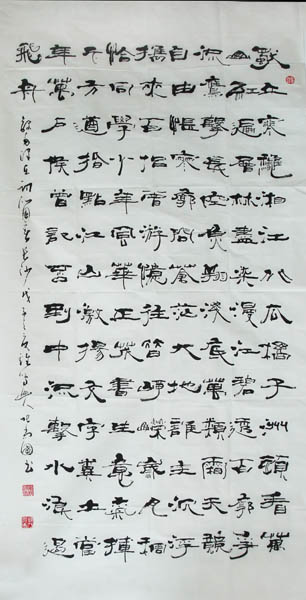 獨立寒龝湘江北去橘子洲頭看萬
山紅遍層林盡染漫江碧透百舸爭
流鷹擊長空魚翔淺底萬類霜天競
自由悵寥廓問蒼茫大地誰主沉浮
攜來百侶曾游憶往昔崢嶸歲月稠
恰同學少年風華正茂書生意氣揮
斥方遒指點江山激揚文字糞土當
年萬戶侯曾記否到中流擊水浪遏
飛舟
澤東詞沁園春長沙戊子書